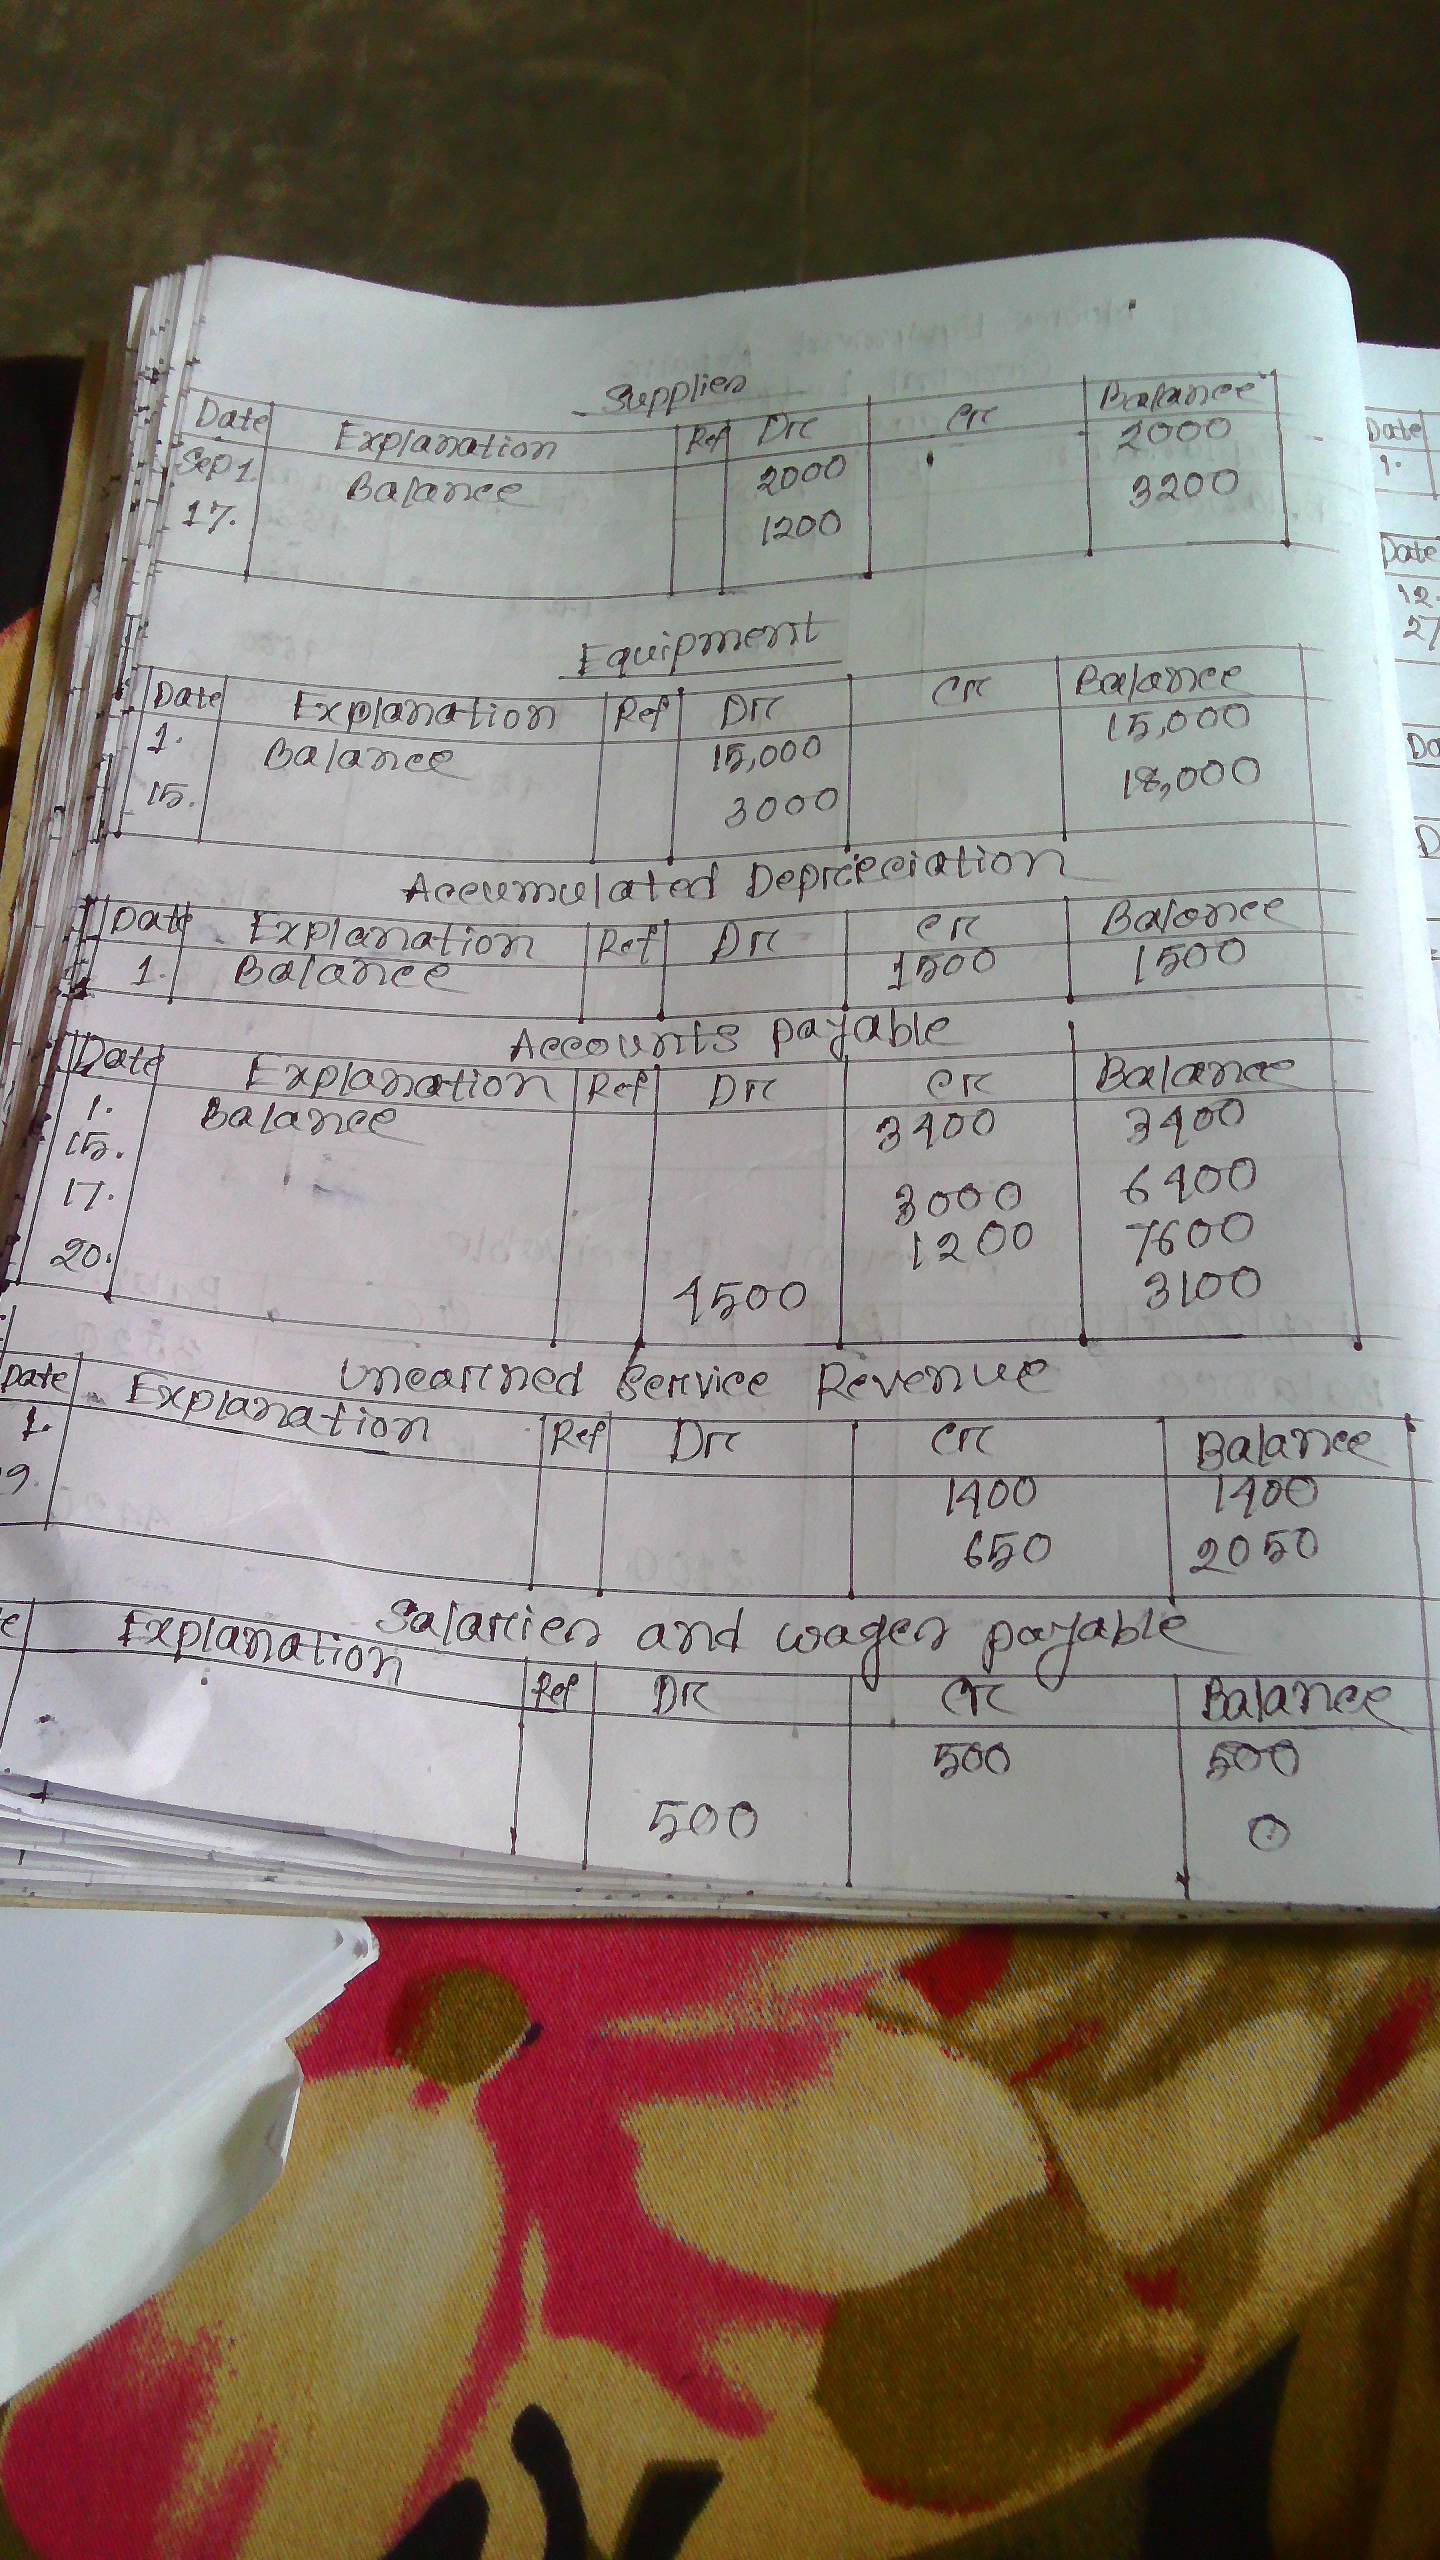 Supplies
Date Explanation Ref Dr Cr Balance
Sep 1. Balance 2000 2000
17. 1200 3200
Equipment
Date Explanation Ref Dr Cr Balance
1. Balance 15,000 15,000
15. 3000 18,000
Accumulated Depreciation
Date Explanation Ref Dr Cr Balance
1. Balance 1500 1500
Accounts payable
Date Explanation Ref Dr Cr Balance
1. Balance 3400 3400
15. 3000 6400
17. 1200 7600
20. 4500 3100
Unearned Service Revenue
Date Explanation Ref Dr Cr Balance
1. 1400 1400
9. 650 2050
Salaries and wages payable
Explanation Ref Dr Cr Balance
500 500
500 0
Date
1.
Date
12.
27